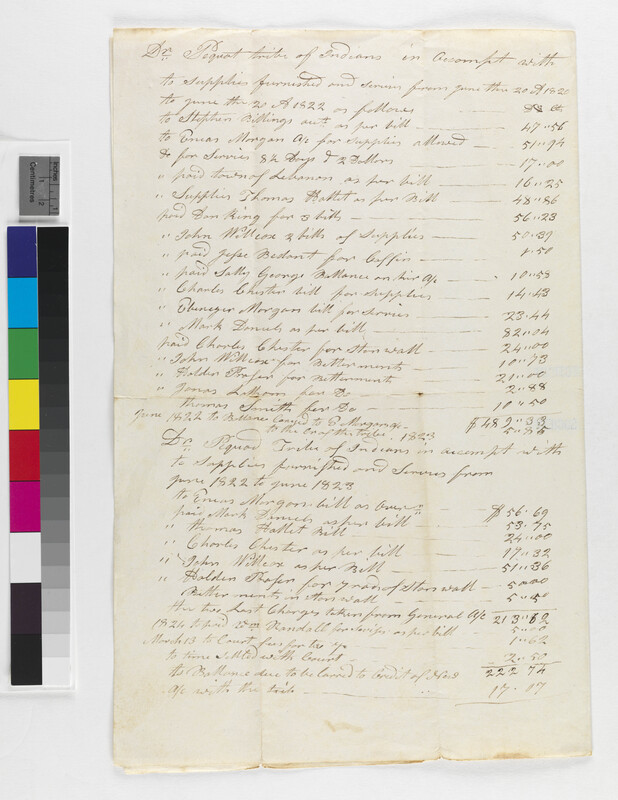 Dr. Pequot tribe of Indians in Accompt with
to Supplies furnished and Servis from June the 20 AD 1820
to June the 20 A 1822 as follows D Ct
to Stephen Billings act as per bill 47"56
to Enias Morgan A/c for Supplies allowed 51"94
do for Servies 8½ Days @ 2 Dollars 17"00
" paid town of Lebanon as per bill 16"25
" Supplies Thomas Hallet as per Bill 48"86
paid Dan King for 3 bills 56"23
" John Willcox 2 bills of Supplies 50"37
" paid Jesse Bedant for Coffin 1"50
" paid Sally George Ballance on hir A/c 10"58
" Charles Chester bill for supplies 14"43
" Ebenezer Morgan bill for Servies 23"44
" Mark Daniels as per bill 82"04
paid Charles Chester for Stonwall 24"00
" John Willcox for Betterments 10"73
" Holden Prosper for Betterments 21"00
" Jonas Latham for Do 2"88
Thomas Smith for Do 10"50
June 1822 to Ballance Carryed to E Morgans $489"33
to the Cr of the tribe 1823 5"86
Dr. Pequod Tribe of Indians in accompt with
to Supplies furnished and Servies from
June 1822 to June 1823
to Enias Morgans bill as Overr $56"69
paid Mark Daniels as per bill 53"75
" Thomas Hallet Bill 24"00
" Charles Chester as per bill 17"32
" John Willcox as per Bill 51"36
" Holden Prosper for 7 rods of Stonwall 5"00
Betterments in Stonwall 5"50
the two Last Charges taken from General A/c 213"62
1824 to paid Wm Randall for Servises as per bill 5"00
March 13 to Court fees for two 1"62
to time Settled with Court 2"50
to Ballance due to be carred to Credit of New 222"74
A/c with the tribe 17"07
Inches
Centimetres